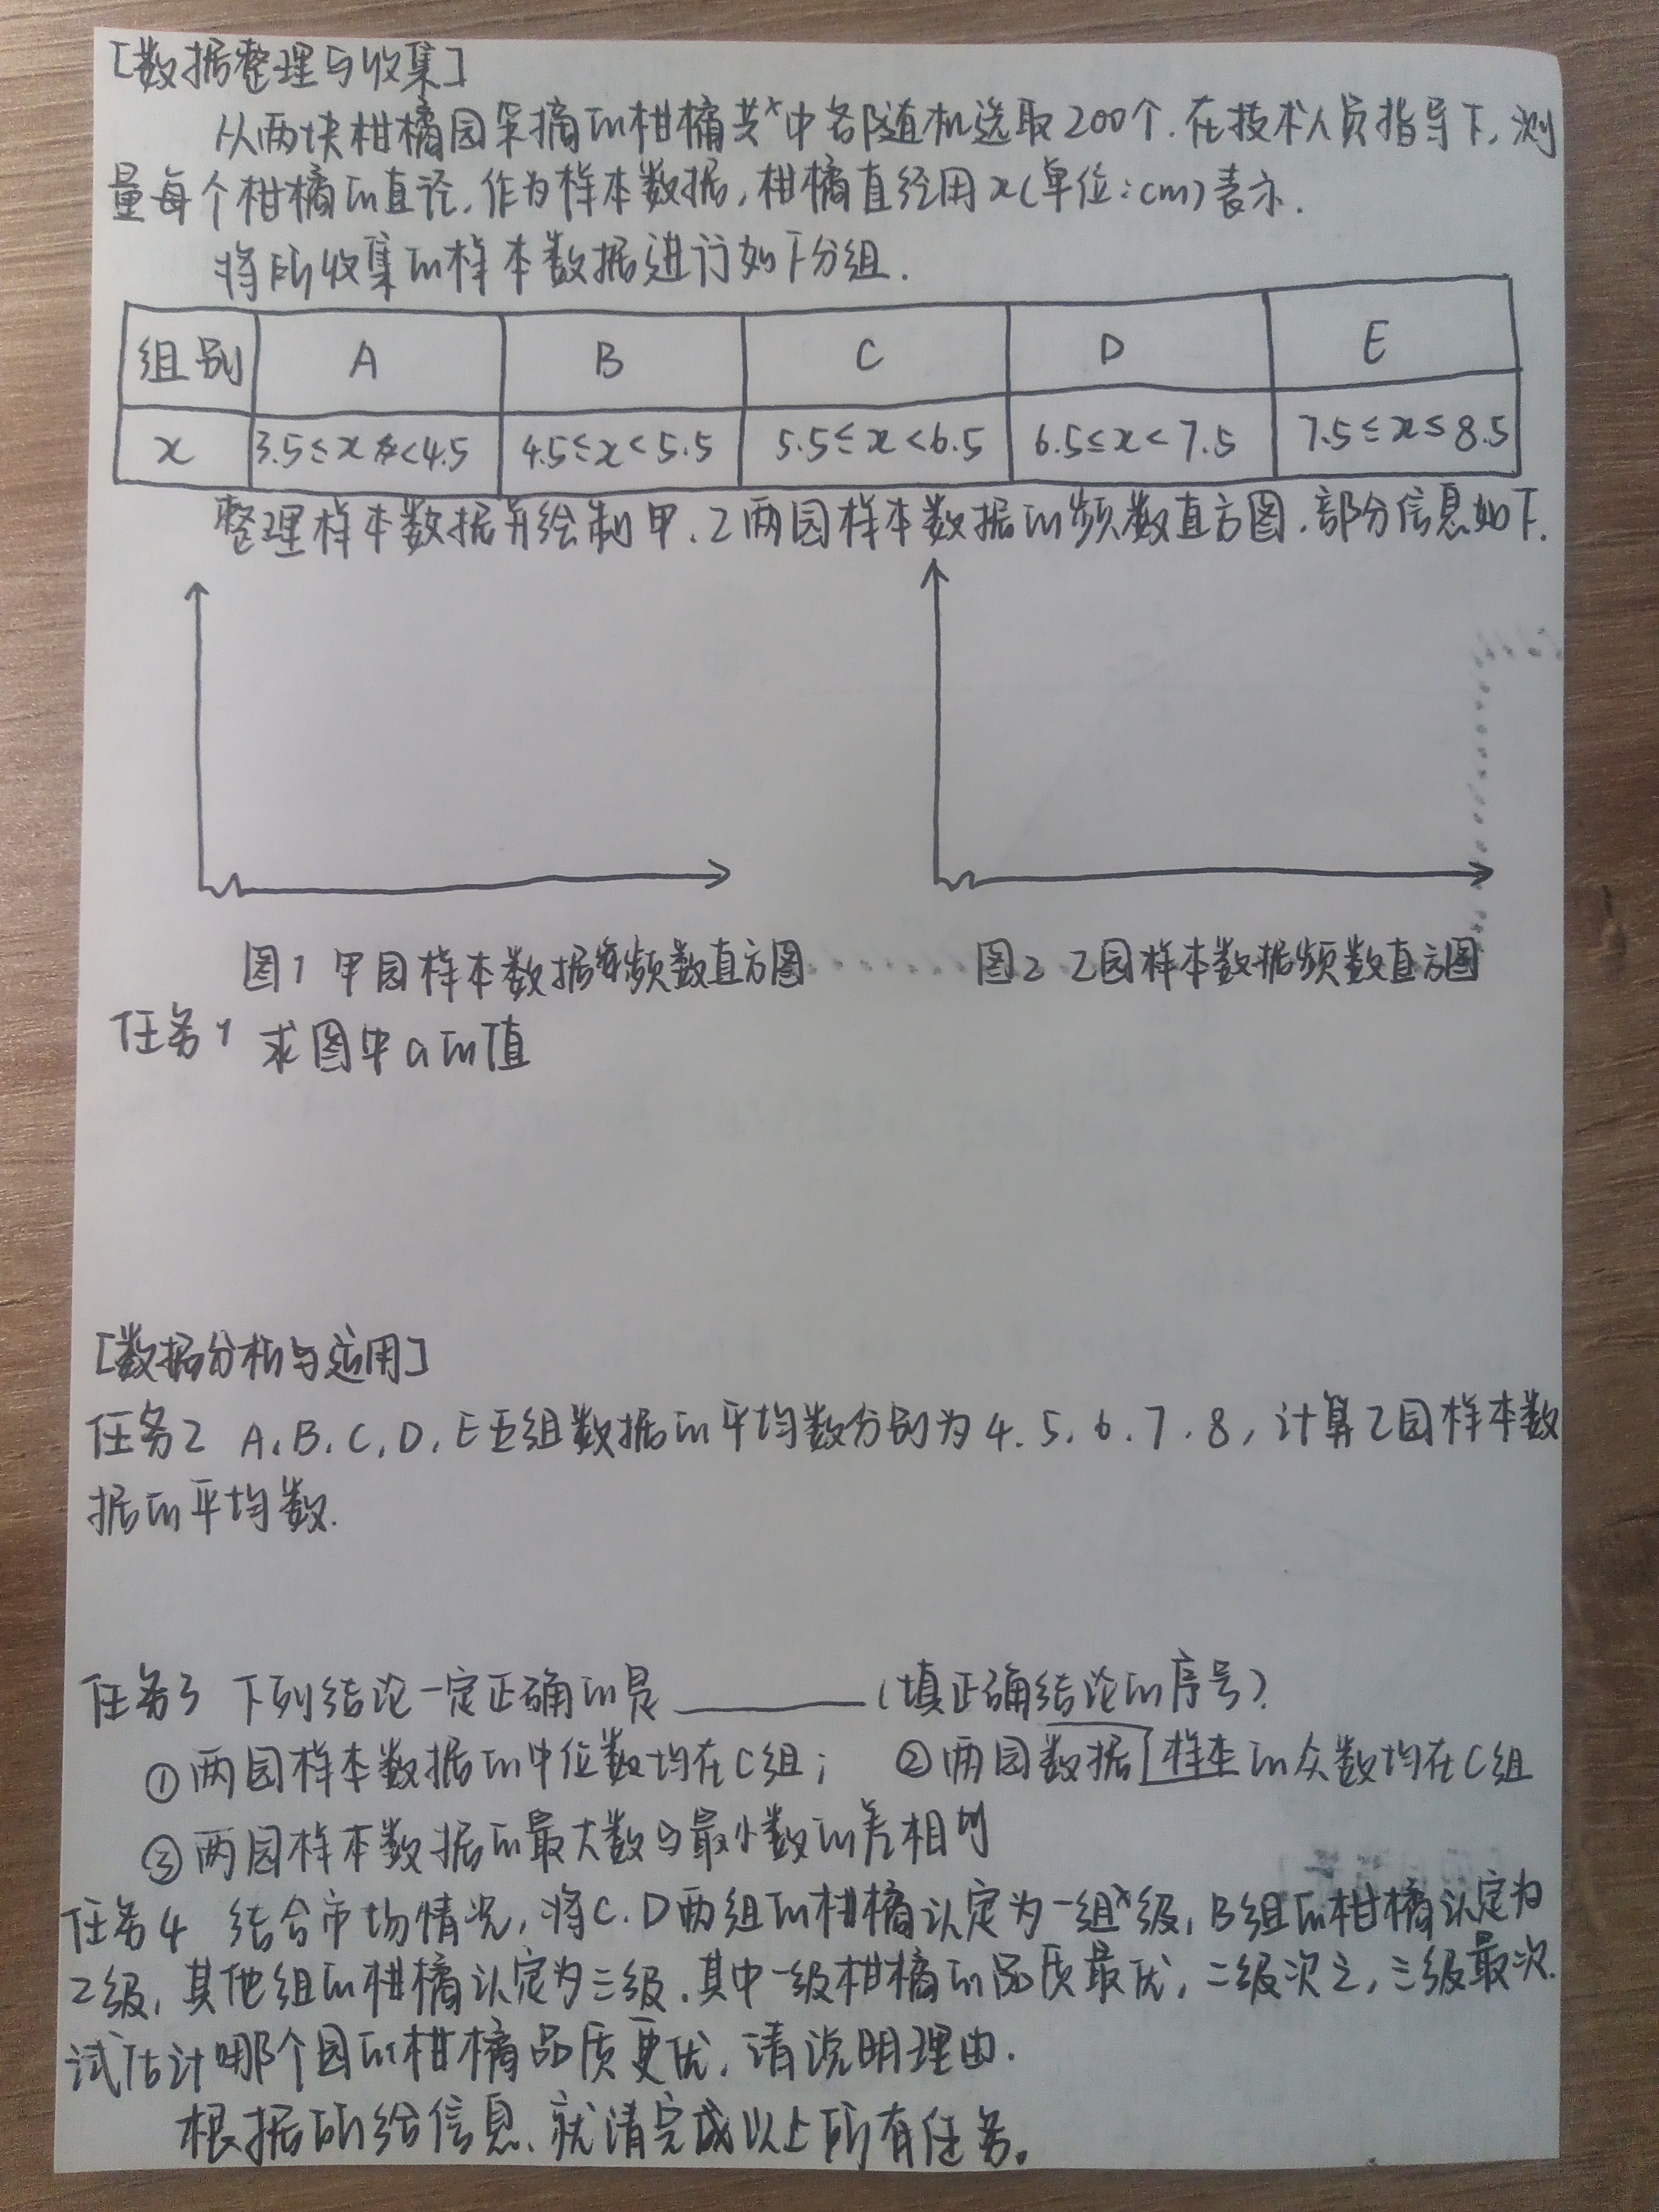 [数据整理与收集]
从两块柑橘园采摘的柑橘共中各随机选取200个.在技术人员指导下,测
量每个柑橘的直径,作为样本数据,柑橘直径用x(单位:cm)表示.
将所收集的样本数据进行如下分组.
组别 A B C D E
x 3.5≤x<4.5 4.5≤x<5.5 5.5≤x<6.5 6.5≤x<7.5 7.5≤x≤8.5
整理样本数据并绘制甲、乙两园样本数据的频数直方图.部分信息如下.
图1 甲园样本数据频数直方图 图2 乙园样本数据频数直方图
任务1 求图中a的值
[数据分析与运用]
任务2 A、B、C、D、E五组数据的平均数分别为4、5、6、7、8,计算乙园样本数
据的平均数.
任务3 下列结论一定正确的是______(填正确结论的序号).
①两园样本数据的中位数均在C组; ②两园数据样本的众数均在C组
③两园样本数据的最大数与最小数的差相等
任务4 结合市场情况,将C、D两组的柑橘认定为一级,B组的柑橘认定为
乙级,其他组的柑橘认定为三级.其中一级柑橘的品质最优,二级次之,三级最次.
试估计哪个园的柑橘品质更优,请说明理由.
根据所给信息、就请完成以上所有任务。